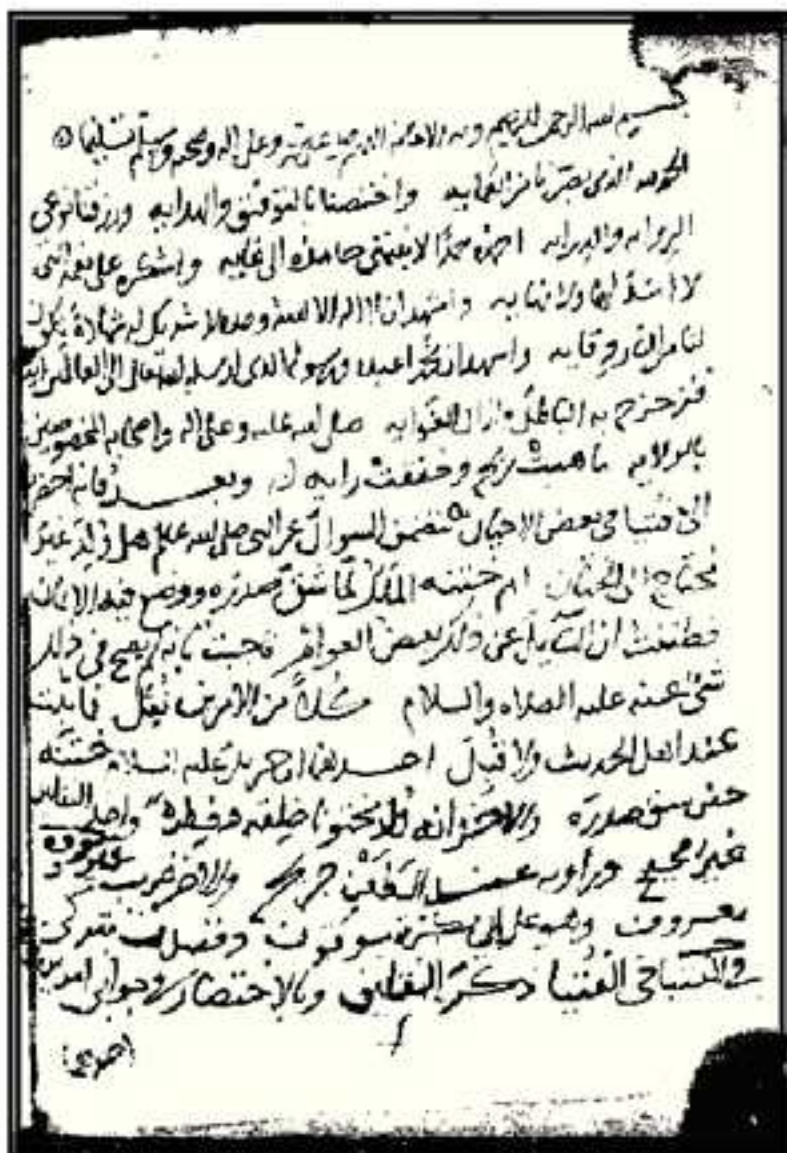 بسم الله الرحمن الرحيم وعلى اله وصحبه وسلم تسليما
الحمد لله الذي بصرنا من العمايه واختصنا بالتوفيق والهدايه ورزقنا نوعي
الروايه والدرايه احمده حمدا لا ينتهي حامده الى غايه واشكره على نعمه التي
لا ابتدا لها ولا نهايه واشهد ان لا اله الا الله وحده لا شريك له شهادة تكون
لنا من النار وقايه واشهد ان محمدا عبده ورسوله الذي ارسله الله تعالى الى العالمين
فزحزح به الباطل وازال الغوايه صلى الله عليه وعلى اله واصحابه المخصوصين
بالولايه ما هبت ريح وخفقت رايه وبعد فانه احضر
الي فتيا في بعض الاحيان تتضمن السوال عن النبي صلى الله عليه وسلم هل ولد غير
محتاج الى الختان ام ختنه الملك لما شق صدره ووضع فيه الايمان
فظننت ان السايل عن ذلك بعض العوام فاجبت بانه لم يصح في ذلك
شي عنه عليه الصلاه والسلام من الامرين نقل ثابت
عند اهل الحديث ولا قبل احدهما ان جبريل عليه السلام ختنه
حين شق صدره والاخر انه ولد مختونا خلقه وفطره
غير صحيح وراويه عند جرح والاخر غريب
معروف وهو على ابي بكرة موقوف
في الفتيا ذكر النقلين وبالاختصار جوابي